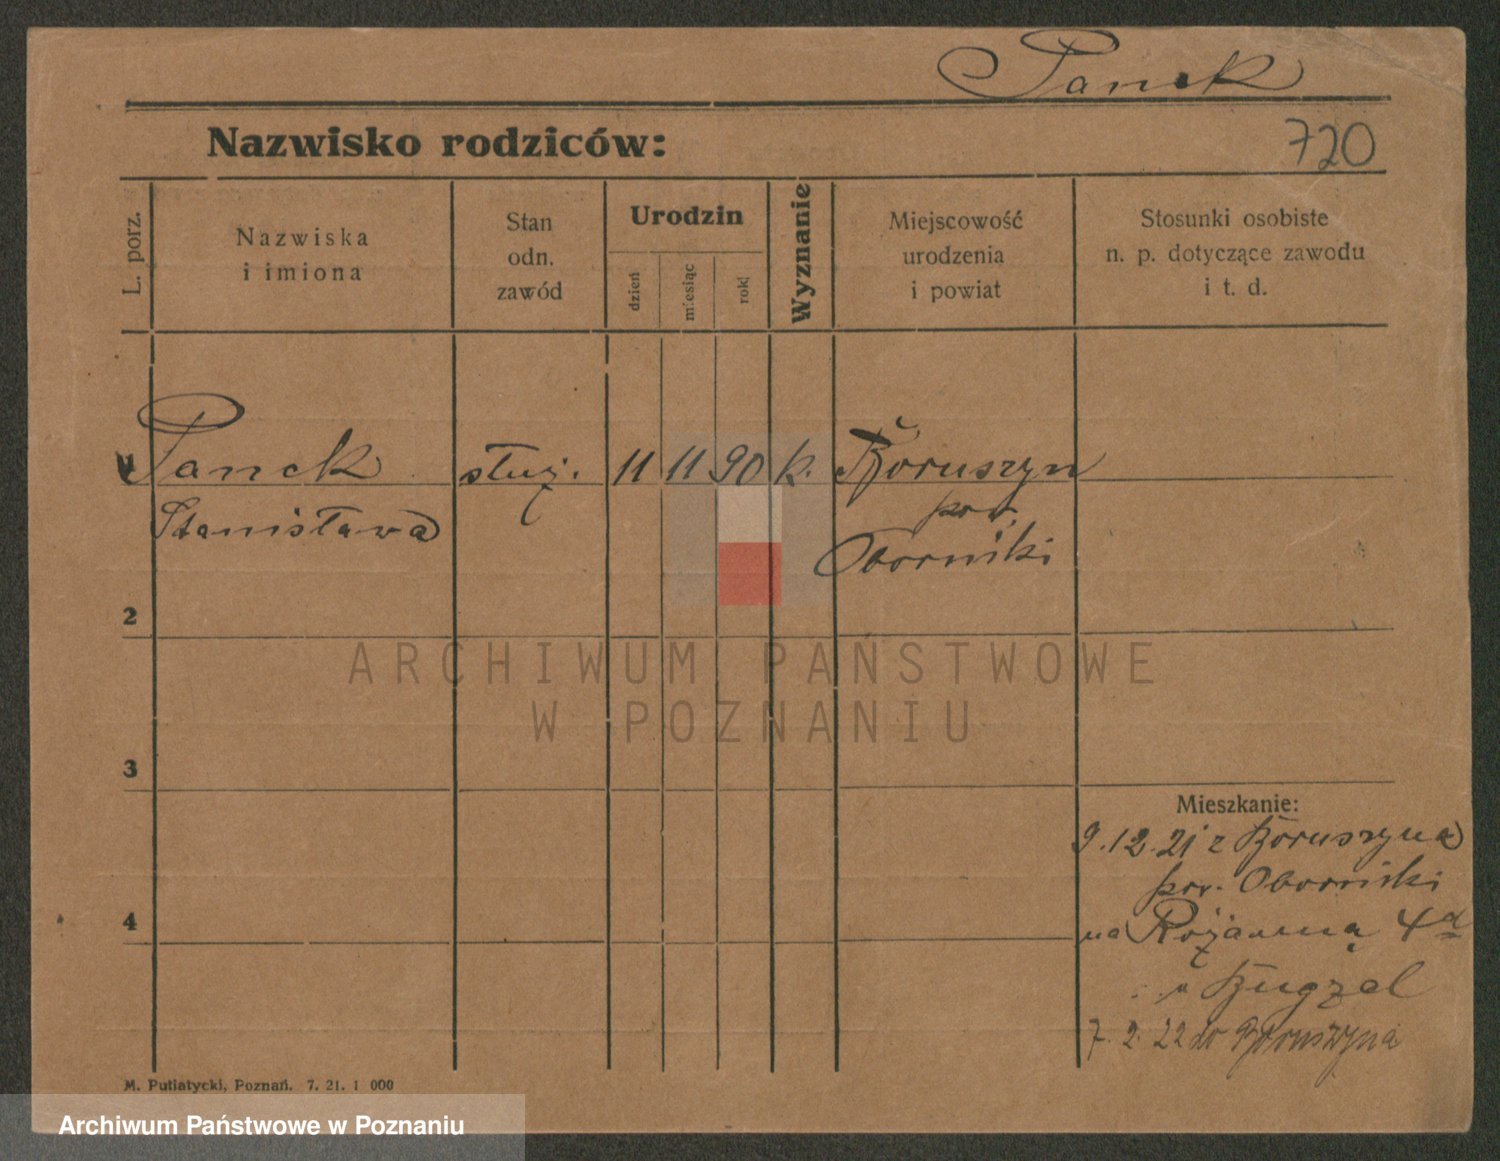 Panek
Nazwisko rodziców:
720
L. porz.
Nazwiska
i imiona
Stan
odn.
zawód
Urodzin
dzień
miesiąc
rok
Wyznanie
Miejscowość
urodzenia
i powiat
Stosunki osobiste
n. p. dotyczące zawodu
i t. d.
1 Panek służ. 11 11 90 k. Boruszyn
Stanisława pow.
Oborniki
2
3
4
ARCHIWUM PAŃSTWOWE
W POZNANIU
Mieszkanie:
9.12.21 z Boruszyna
pow. Oborniki
na Różanną 4d
u Bugzel
7.2.22 do Boruszyna
M. Putiatycki, Poznań. 7. 21. 1 000
Archiwum Państwowe w Poznaniu